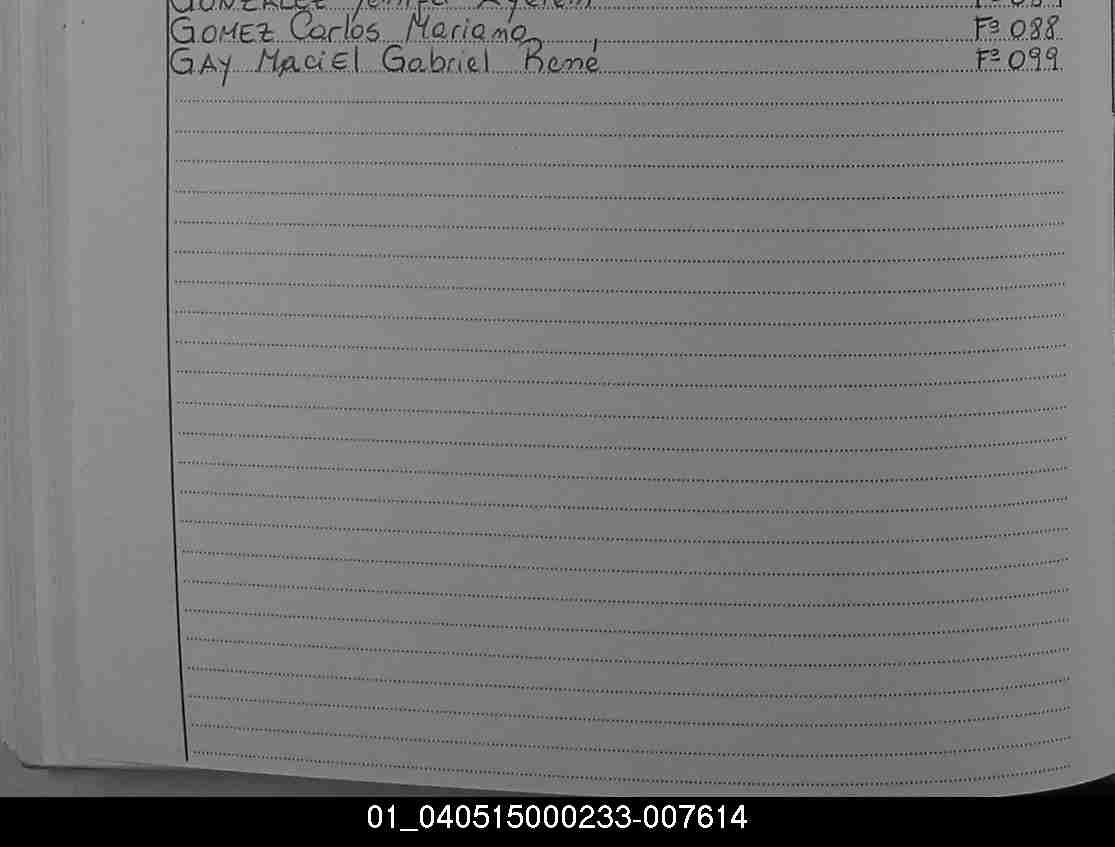 GONZALEZ
GOMEZ Carlos Mariano Fº 088
GAY Maciel Gabriel René Fº 099
01_040515000233-007614